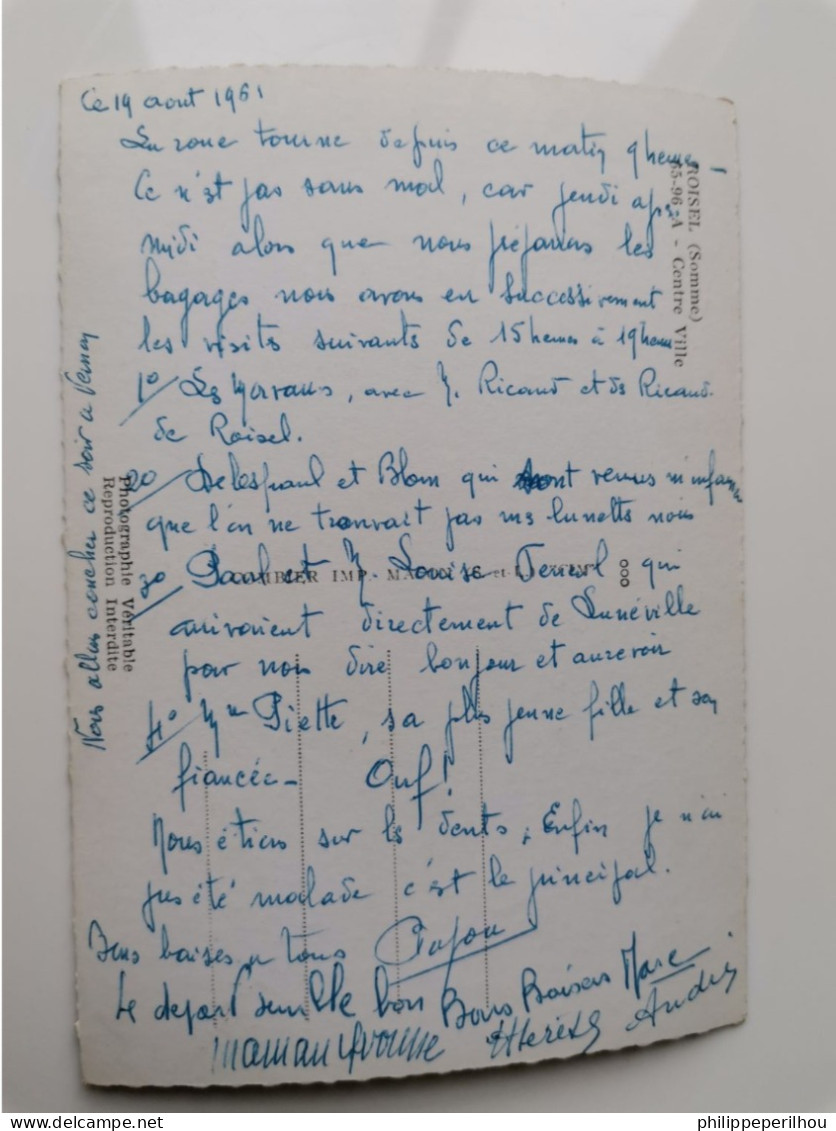 Ce 19 aout 1961
La roue tourne depuis ce matin 9 heures
Ce n'est pas sans mal, car jeudi après
midi alors que nous préparions les
bagages nous avons eu successivement
les visites suivants de 15 heures à 19 heures
1° Les Morvans, avec M. Ricaud et de Ricaud
de Roisel.
20 Delespaul et Blom qui sont venus
que l'on ne trouvait pas mes lunettes nous
30 Paul et M Louise qui
arrivaient directement de Lunéville
pour nous dire bonjour et aurevoir
4° Mme Piette, sa plus jeune fille et son
fiancée - Ouf!
Nous étions sur les dents, Enfin je n'ai
pas été malade c'est le principal.
Bons baises a tous Papou
Le depart semble bon Bons Baisers Marc
maman Yvonne Therese André
Nous allons coucher ce soir a
ROISEL (Somme)
35-96-A - Centre Ville
Photographie Véritable
Reproduction Interdite
COMBIER IMP. MACON
www.delcampe.net
philippeperilhou